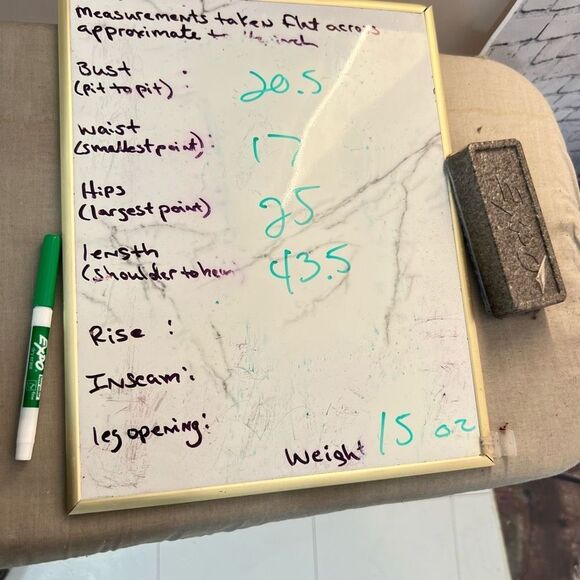 Measurements taken flat across
approximate to 1/2 inch
Bust : 20.5
(pit to pit)
Waist : 17
(smallest point)
Hips 25
(largest point)
length 43.5
(shoulder to hem)
Rise :
Inseam :
leg opening :
Weight 15 oz
EXPO